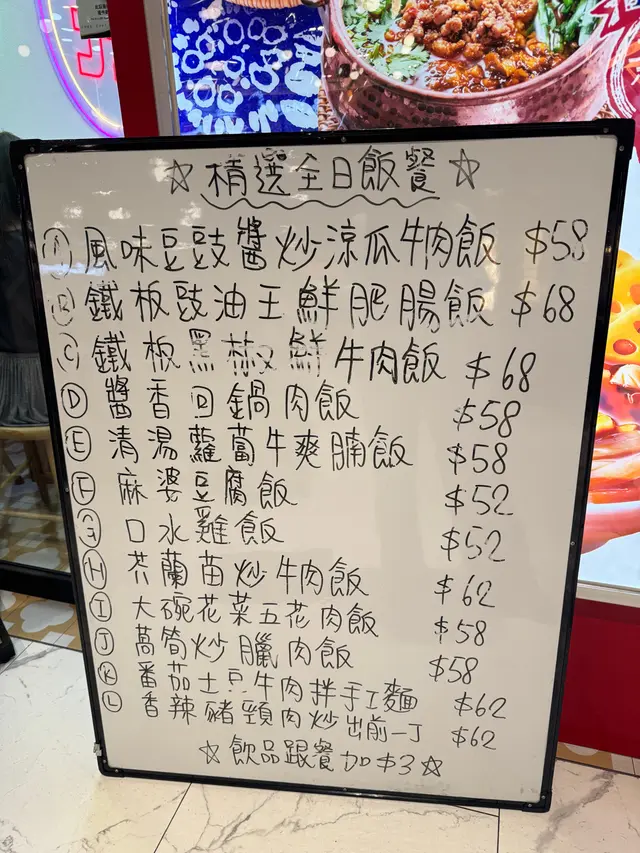 ☆精選全日飯餐☆
Ⓐ 風味豆豉醬炒涼瓜牛肉飯 $58
Ⓑ 鐵板豉油王鮮肥腸飯 $68
Ⓒ 鐵板黑椒鮮牛肉飯 $68
Ⓓ 醬香回鍋肉飯 $58
Ⓔ 清湯蘿蔔牛爽腩飯 $58
Ⓕ 麻婆豆腐飯 $52
Ⓖ 口水雞飯 $52
Ⓗ 芥蘭苗炒牛肉飯 $62
Ⓘ 大碗花菜五花肉飯 $58
Ⓙ 萵筍炒臘肉飯 $58
Ⓚ 番茄土豆牛肉拌手工麵 $62
Ⓛ 香辣豬頸肉炒出前一丁 $62
☆飲品跟餐加$3☆